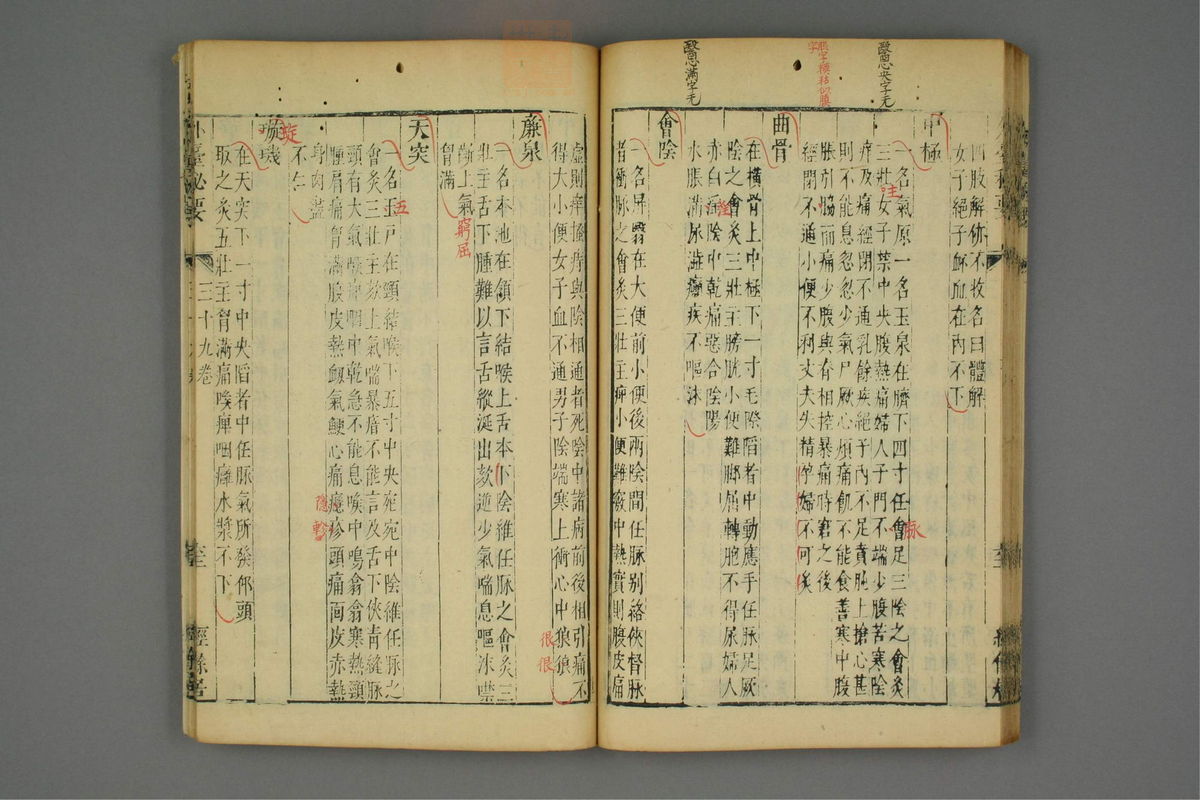 四肢解㑊不收名曰體解
女子絕子衃血在內不下
中極
一名氣原一名玉泉在臍下四寸任會足三陰之會灸
三壯女子禁中央腹熱痛婦人子門不端少腹苦寒陰
痒及痛經閉不通乳餘疾絕子內不足賁㹠上搶心甚
則不能息忽忽少氣尸厥心煩痛飢不能食善寒中腹
脹引脇而痛少腹與脊相控暴痛時窘之後
經閉不通小便不利丈夫失精孕婦不可灸
曲骨
在橫骨上中極下一寸毛際陷者中動應手任脉足厥
陰之會灸三壯主膀胱小便難脚屈轉胞不得尿婦人
赤白陰中乾痛惡合陰陽
水脹滿尿澁癲疾不嘔沫
會陰
一名屏翳在大便前小便後兩陰間任脉別絡俠督脉
者衝脉之會灸三壯主痺小便難竅中熱實則腹皮痛
醫心央字无
脹字橫枯似腹
字
醫心滿字毛
主
脉
虛則痒搔痒與陰相通者死陰中諸病前後相引痛不
得大小便女子血不通男子陰端寒上衝心中狼狼
廉泉
一名本池在頷下結喉上舌本下陰維任脉之會灸三
壯主舌下腫難以言舌縱涎出欬逆少氣喘息嘔沫噤
齘上氣窮屈
胷滿
天突
一名玉戶在頸結喉下五寸中央宛宛中陰維任脉之
會灸三壯主欬上氣喘暴瘖不能言及舌下俠青縫脉
頸有大氣喉痺咽中乾急不能息喉中鳴翕翕寒熱頸
腫肩痛胷滿腹皮熱衂氣鯁心痛癮疹頭痛面皮赤熱
身肉盡
不仁
璇璣
在天突下一寸中央陷者中任脉氣所發仰頭
取之灸五壯主胷滿痛喉痺咽癰水漿不下
外臺秘要
三十九卷
經餘居
很很
五
隱軫
琁